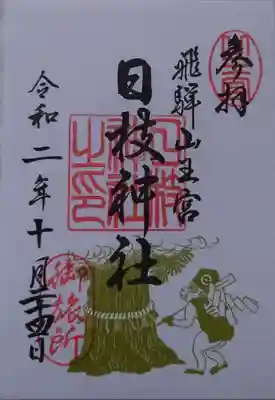 参拝
飛騨山王宮
日枝神社
令和二年十月二十四日
御旅所